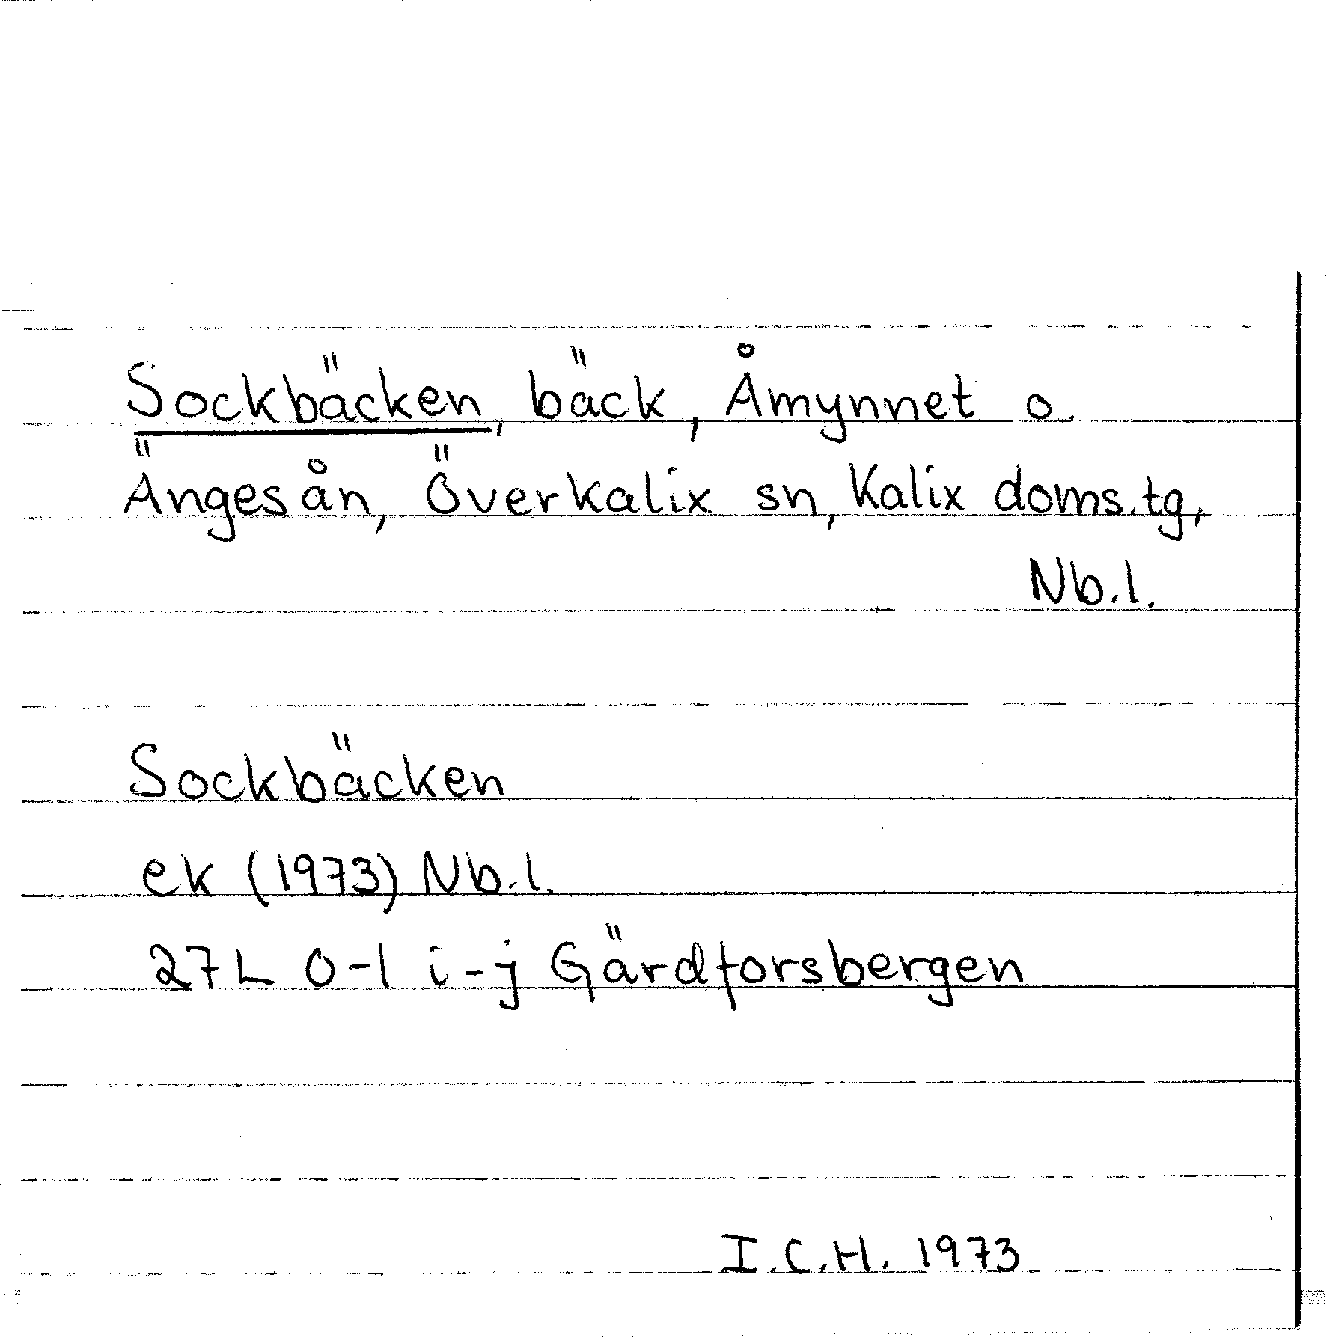 Sockbäcken, bäck, Åmynnet o.
Ängesån, Överkalix sn, Kalix doms.tg,
Nb.l.
Sockbäcken
ek (1973) Nb.l.
27L 0-1 i-j Gärdforsbergen
I.C.H. 1973